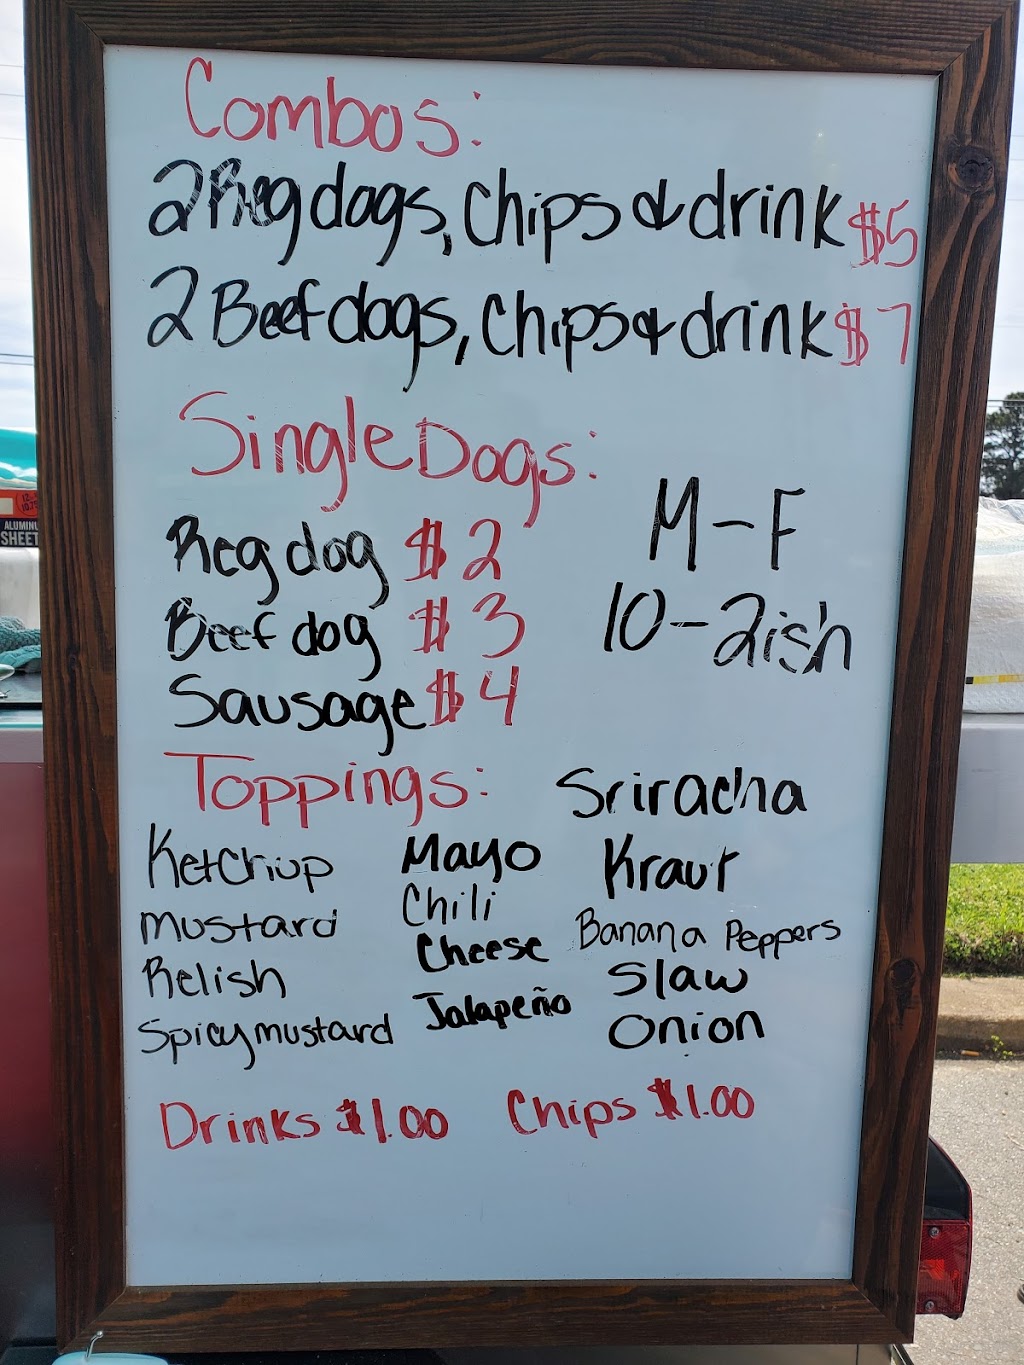 Combos:
2 Reg dogs, Chips & drink $5
2 Beef dogs, Chips & drink $7
Single Dogs:
Reg dog $2
Beef dog $3
Sausage $4
M-F
10-2ish
Toppings:
Ketchup
Mustard
Relish
Spicy mustard
Mayo
Chili
Cheese
Jalapeño
Sriracha
Kraut
Banana Peppers
Slaw
Onion
Drinks $1.00 Chips $1.00
SHEET